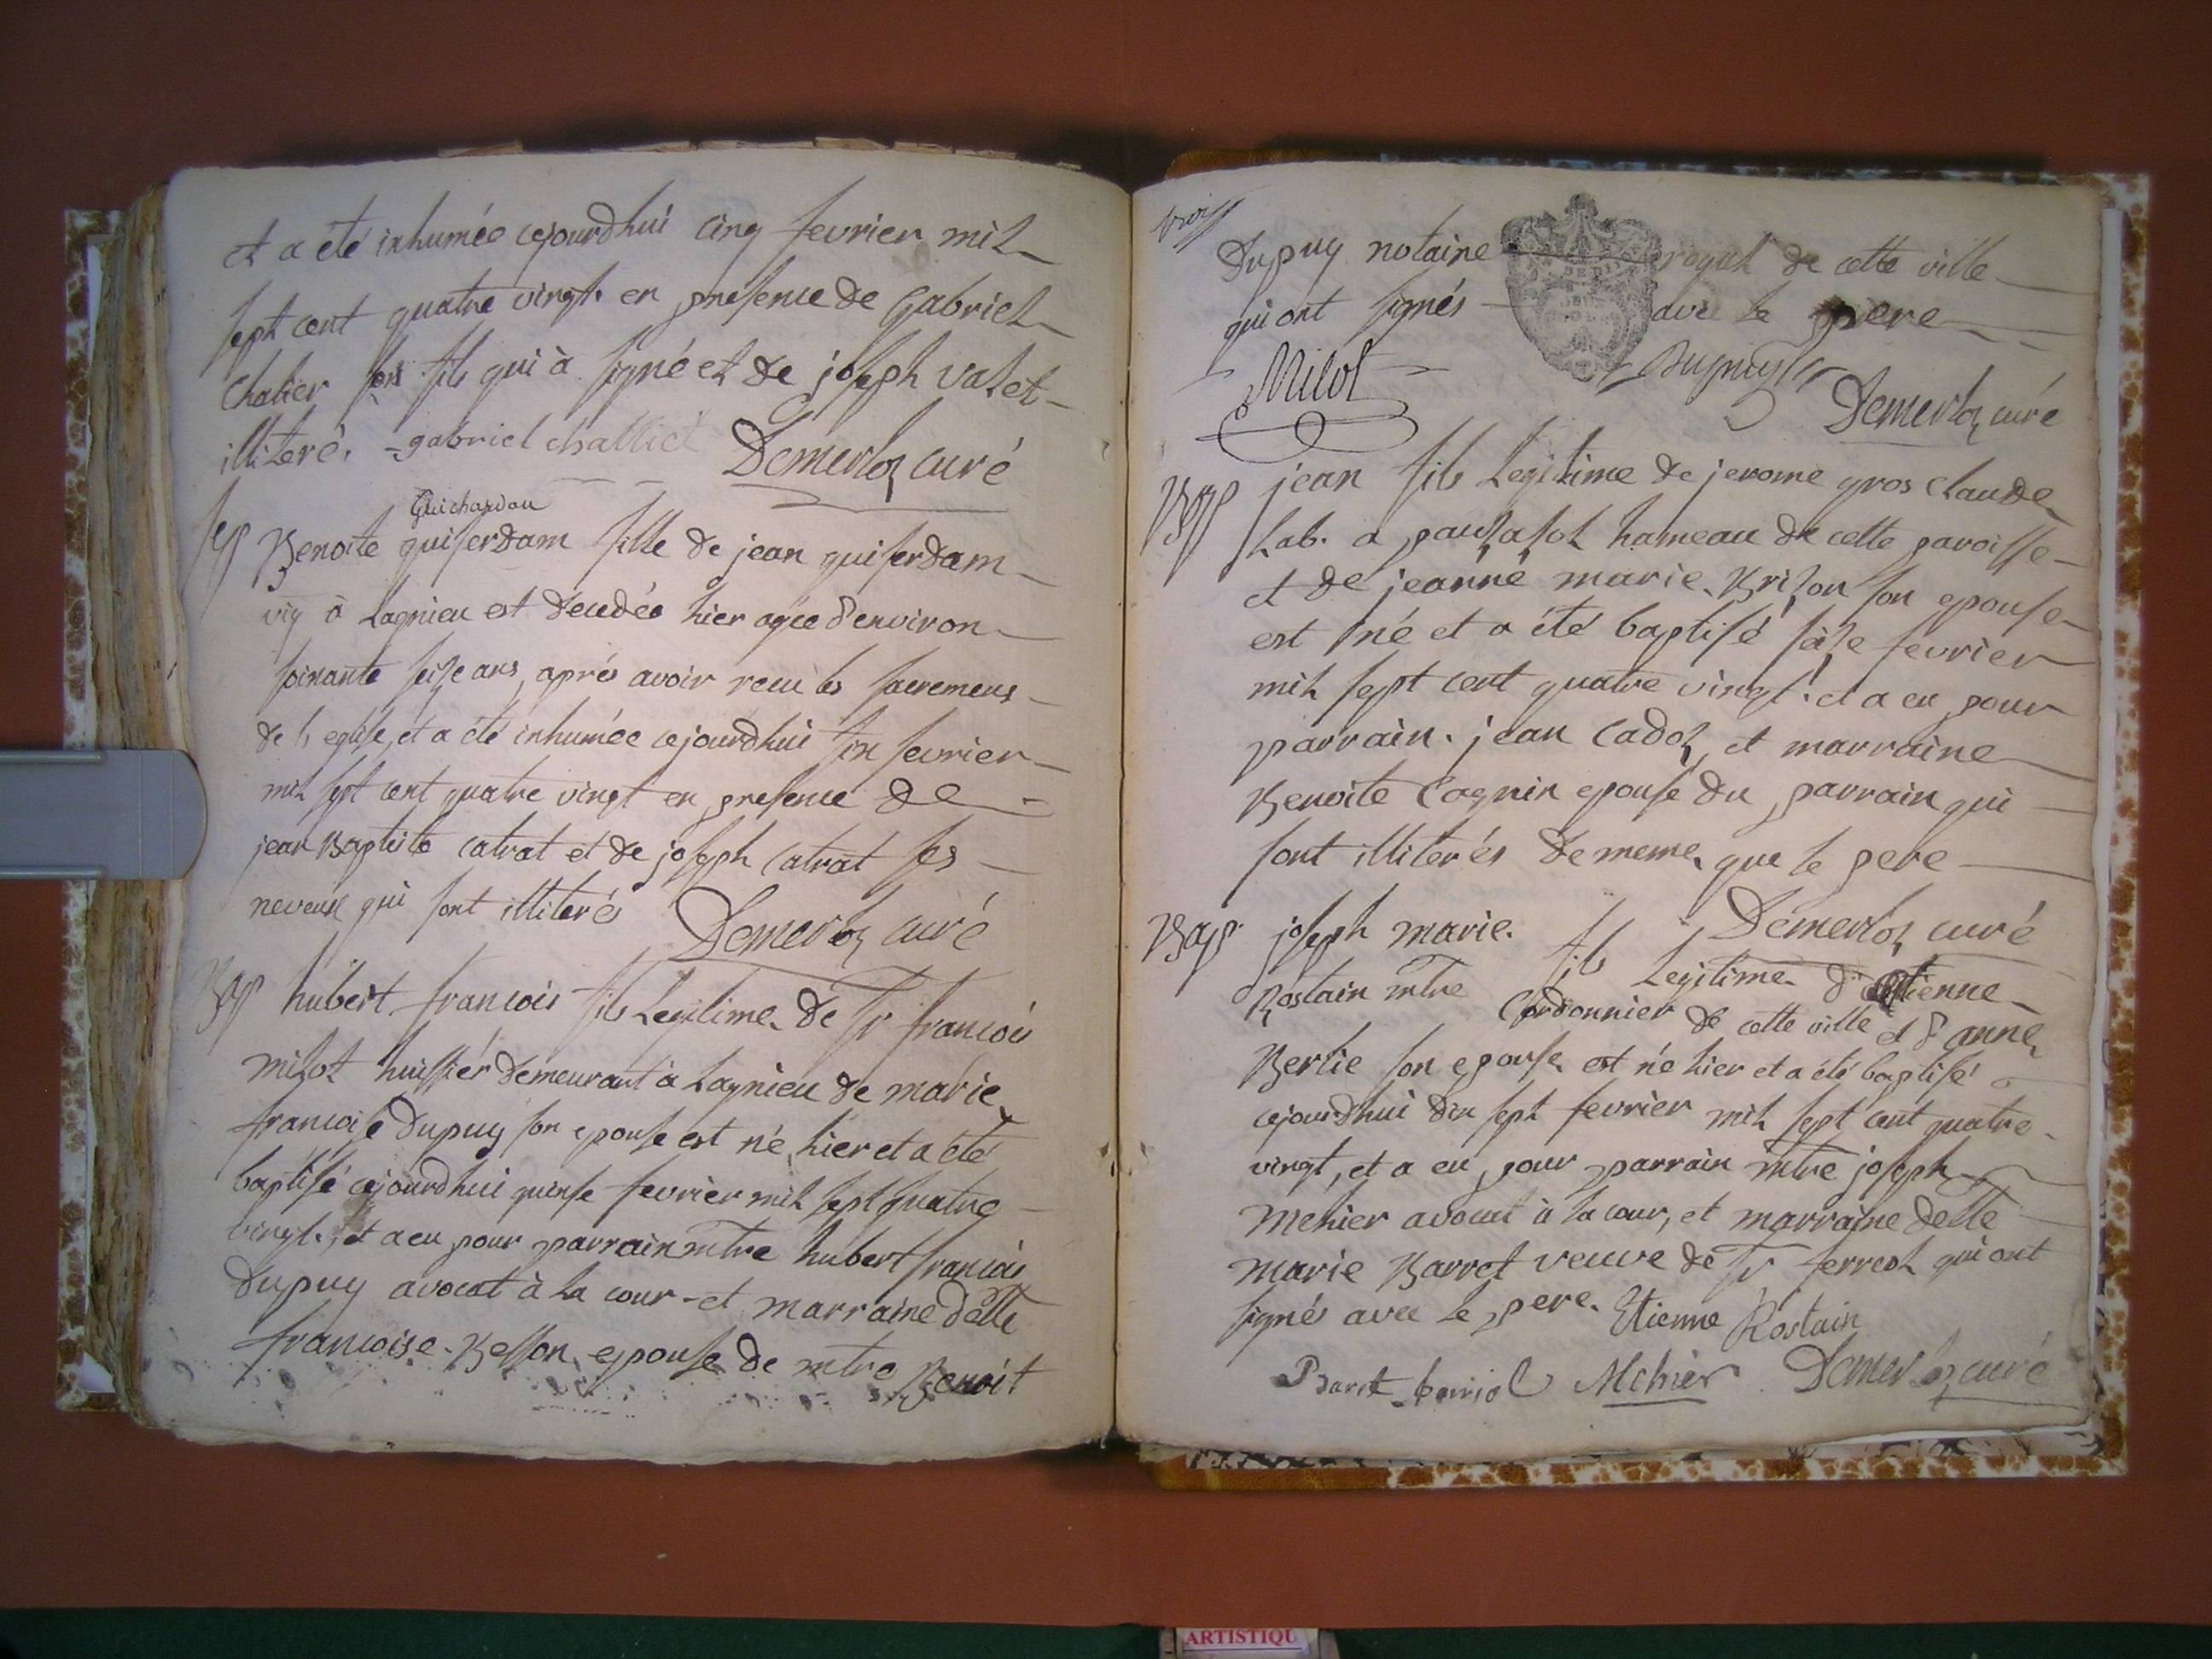 et a été inhumée cejourdhui cinq fevrier mil
sept cent quatre vingt. en presence de Gabriel
Chalier son fils qui à signé et de joseph valet
illiteré. gabriel challiet Demerloz curé
sep
Guichardan
Benoite guiserdam fille de jean guiserdam
vig à Lagnieu est decedée hier agée d'environ
soixante seize ans, aprés avoir recu les sacremens
de l'eglise, et a été inhumée cejourdhui six fevrier
mil sept cent quatre vingt en presence de
jean Baptiste catrat et de joseph Catrat ses
neveux qui sont illiterés Demerloz curé
Bap hubert francois fils Legitime de Sr francois
milot huissiér demeurant à Lagnieu de marie
francoise Dupuy son epouse est né hier et a été
baptisé cejourdhui quinse fevrier mil sept quatre
vingt., et a eu pour parrain mtre hubert francois
Dupuy avocat à la cour et marraine delle
francoise Besson epouse de mtre Benoit
Dupuy notaire royal de cette ville
qui ont signés avec le pere
Milot Dupuy Demerloz curé
Bap jean fils Legitime de jerome gros claude
Lab. a hameau de cette paroisse
et de jeanne marie Brizon son epouse
est né et a été baptisé seize fevrier
mil sept cent quatre vingt. et a eu pour
parrain. jean Cadoz et marraine
Benoite Cagnin epouse du parrain qui
sont illiterés de meme que le pere
Demerloz curé
Bap. joseph marie. fils Legitime d'etienne
Rostain mtre Cordonnier de cette ville et d'anne
Berlie son epouse est né hier et a été baptisé
cejourdhui dix sept fevrier mil sept cent quatre
vingt, et a eu pour parrain mtre joseph
mehier avocat à la cour, et marraine delle
marie Barret veuve de Sr ferreol qui ont
signés avec le pere. Etienne Rostain
Baret ferriol Mehier Demerloz curé
ARTISTIQU